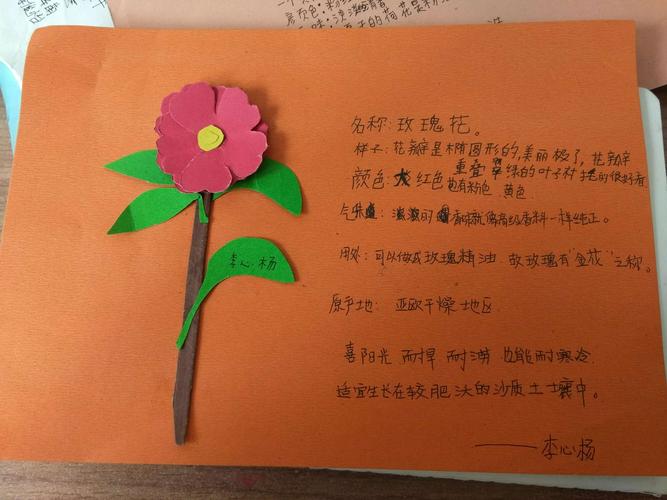 名称:玫瑰花。
样子:花瓣是椭圆形的,美丽极了,花瓣
重叠 绿的叶子衬托的很好看
颜色:大红色 也有粉色 黄色
气味: 香味就像高级香料一样纯正。
用处:可以做成玫瑰精油 故玫瑰有"金花"之称。
原产地: 亚欧干燥地区
喜阳光 耐旱 耐涝 也能耐寒冷
适宜生长在较肥沃的沙质土壤中。
——李心杨
李心杨